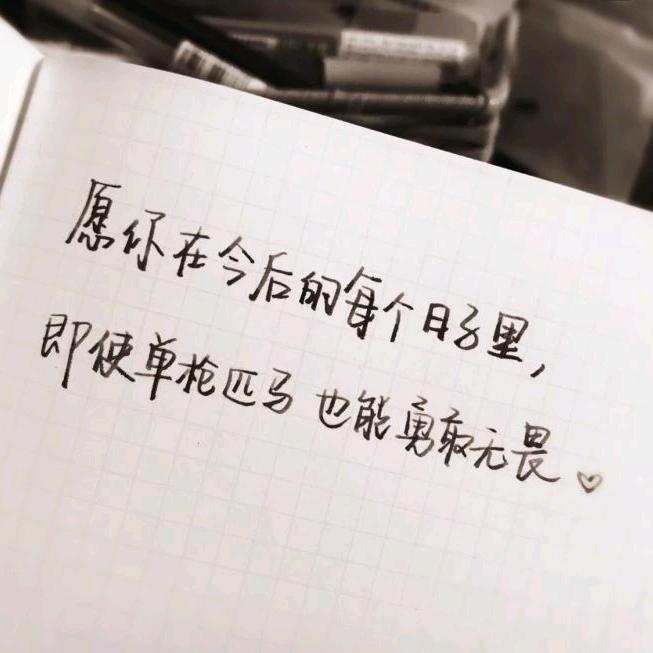 愿你在今后的每个日子里,
即使单枪匹马 也能勇敢无畏。♡